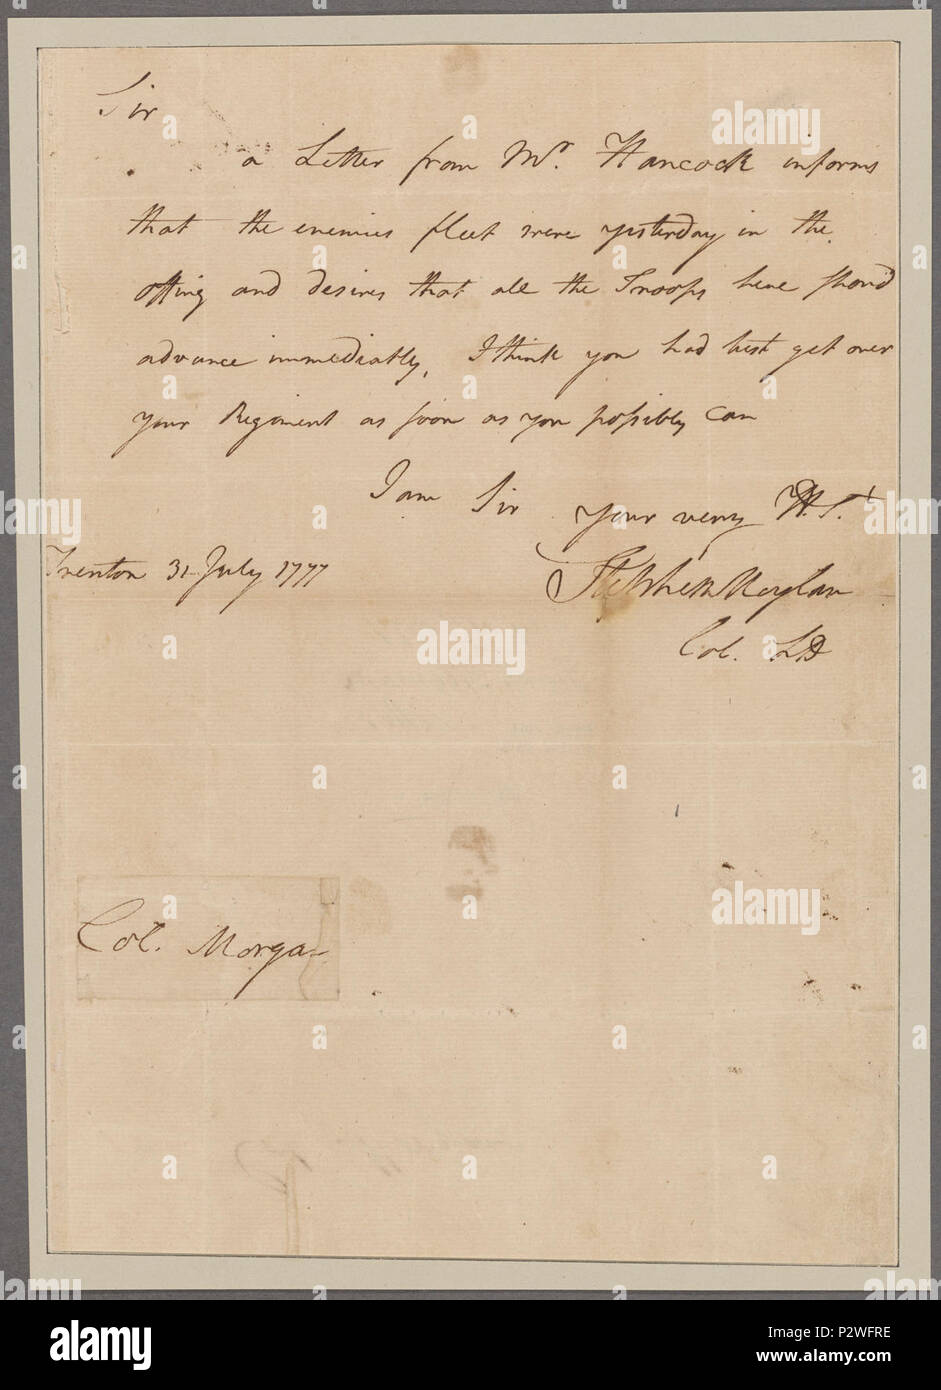 Sir
a Letter from Mr. Hancock informs
that the enemies fleet were yesterday in the
offing and desires that all the Troops here shoud
advance immediatly, I think you had best get over
your Regiment as soon as you possibly Can
I am Sir your very H. St
Trenton 31 July 1777
Stephen Moylan
Col. LD
Col. Morgan
alamy
alamy
Image ID: P2WFRE
www.alamy.com